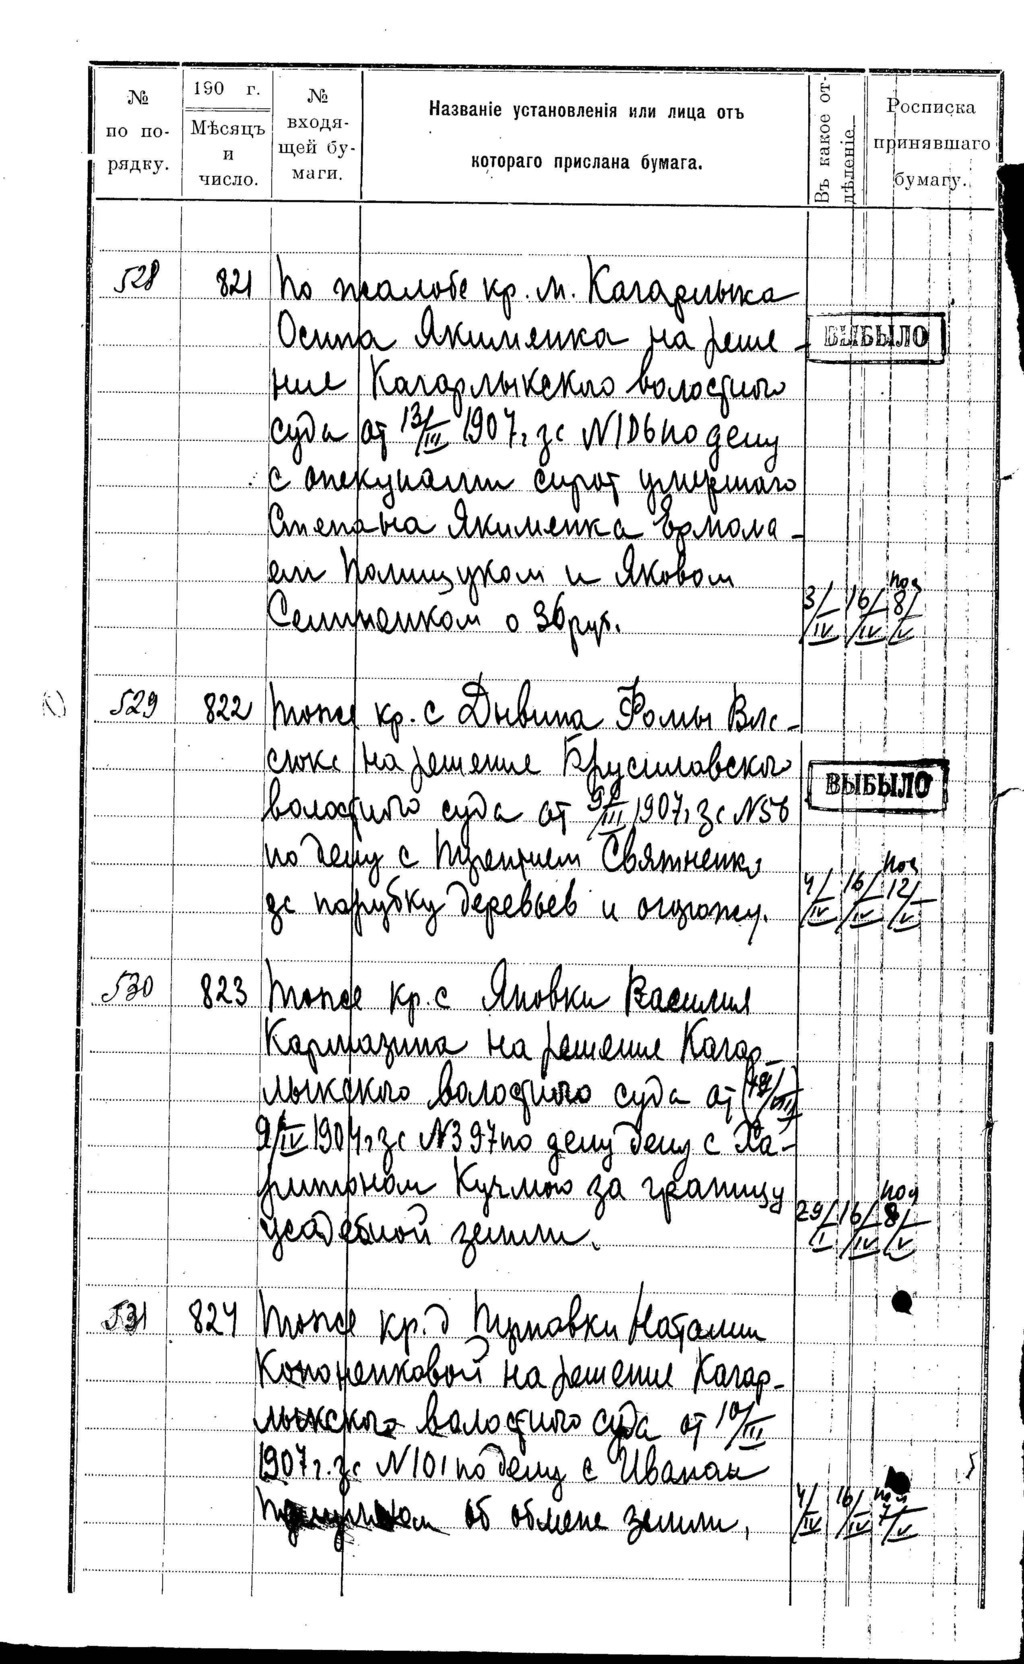 № по порядку.
190 г. Мѣсяцъ и число.
№ входящей бумаги.
Названіе установленія или лица отъ
котораго прислана бумага.
Въ какое отдѣленіе
Росписка принявшаго бумагу.
528 821 По жалобе кр. м. Кагарлыка
Осипа Якименка на реше-
ВЫБЫЛО
ние Кагарлыкского волостного
суда от 13/III 1907 г за N 106 по делу
с опекунами сирот умершого
Степана Якименка Ермола-
ем Полищуком и Яковом
Семипенком о 36 руб.
3/IV 16/IV 8/V
529 822 Тоже кр. с Дывина Фомы
на решение Брусиловского
ВЫБЫЛО
волостного суда от 9/III 1907 г за N 56
по делу с Святненко
за порубку деревьев и огорожу.
4/IV 16/IV 12/V
530 823 Тоже кр. с Яновки Василия
Кармазина на решение Кагар-
лыкского волостного суда от
9/IV 1904 г за N 397 по делу делу с Ха-
ритоном Кучмою за границу
усадебной земли.
29/I 16/IV 8/V
531 824 Тоже кр. д Наталии
Кононенковой на решение Кагар-
лыкского волостного суда от 10/III
1907 г. за N 101 по делу с Иваном
об обмене земли.
4/IV 16/IV 7/V